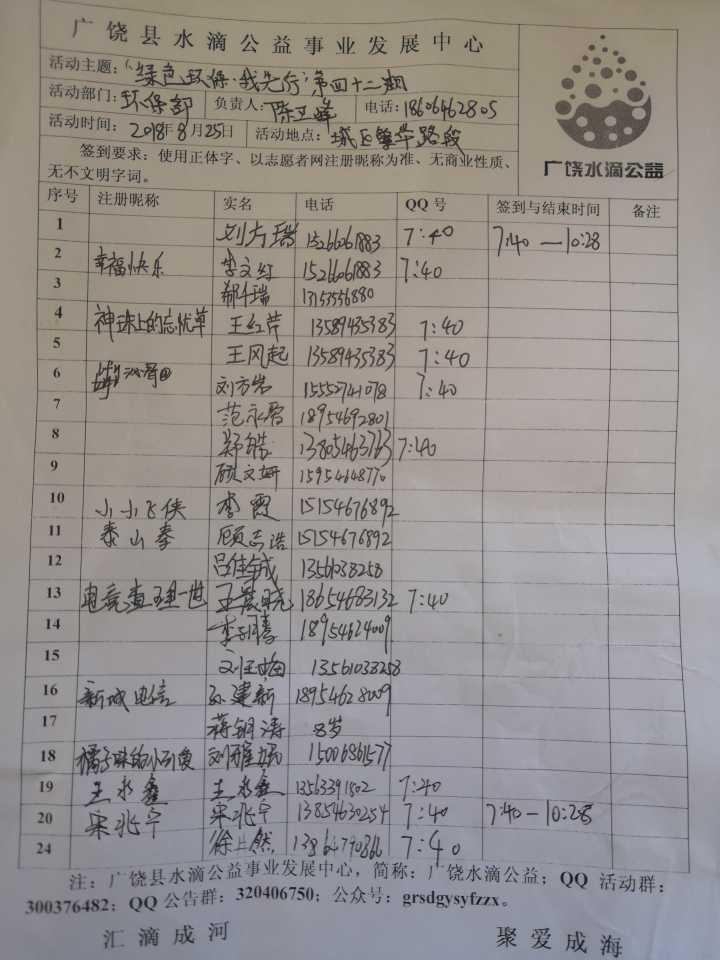 广饶县水滴公益事业发展中心
活动主题：“绿色环保·我先行”第四十二期
活动部门：环保部 负责人：陈卫峰 电话：18606462805
活动时间：2018年8月25日 活动地点：城区繁华路段
广饶水滴公益
签到要求：使用正体字、以志愿者网注册昵称为准、无商业性质、
无不文明字词。
序号 注册昵称 实名 电话 QQ号 签到与结束时间 备注
1 刘方瑞 15266061883 7:40 7:40—10:28
2 幸福快乐 李文红 15266061883 7:40
3 瑞 13153556880
4 神球上的忘忧草 王红芹 13589435383 7:40
5 王风起 13589435383 7:40
6 刘方岩 15552741078 7:40
7 范永 18954692801
8 郑皓 13805463763 7:40
9 顾文妍 15954648770
10 小小飞侠 李霞 15154676892
11 泰山拳 顾志浩 15154676892
12 吕佳 13561038258
13 电竞查理一世 王晓 18654683132 7:40
14 李 18954624009
15 刘 13561038258
16 新城电信 孙建新 18954628009
17 蒋钥涛 8岁
18 橘子味的小 刘雅 15006861577
19 王永鑫 王永鑫 13563391802 7:40
20 宋兆宇 宋兆宇 13854630254 7:40 7:40—10:28
24 徐 然 7:40
注：广饶县水滴公益事业发展中心，简称：广饶水滴公益；QQ 活动群：
300376482；QQ公告群：320406750；公众号：grsdgysyfzzx。
汇滴成河 聚爱成海